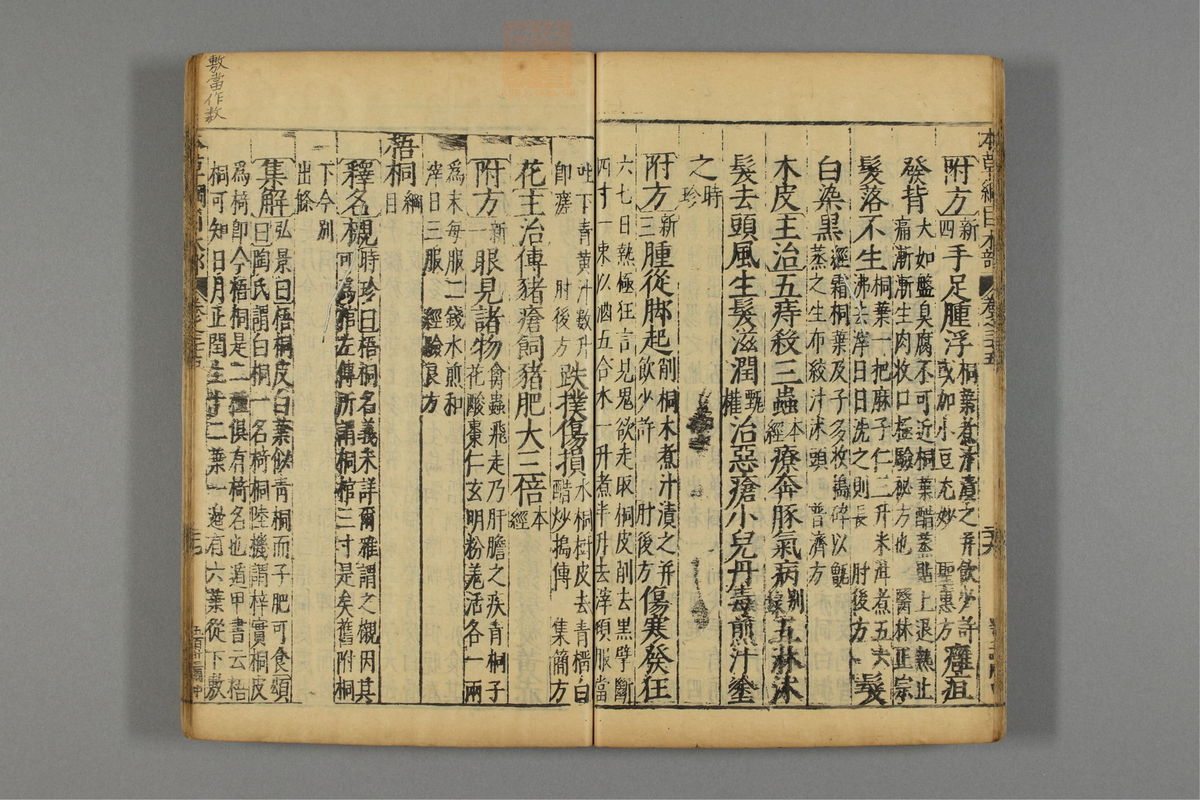 本草綱目木部 卷之三十五
附方新四 手足腫浮 桐葉煮汁漬之并飲少許
或加小豆尤妙 聖惠方 癰疽
發背 大如盤臭腐不可近桐葉醋蒸貼上退熱止
痛漸漸生肉收口極驗秘方也 醫林正宗
髮落不生 桐葉一把麻子仁二升米泔煮五六
沸去滓日日洗之則長 肘後方 髮
白染黑 經霜桐葉及子多收搗碎以甑
蒸之生布絞汁沐頭 普濟方
木皮主治五痔殺三蟲本經療奔豚氣病別錄五淋沐
髮去頭風生髮滋潤甄權治惡瘡小兒丹毒煎汁塗
之時珍
附方新三 腫從脚起 削桐木煮汁漬之并
飲少許 肘後方 傷寒發狂
六七日熱極狂言見鬼欲走取桐皮削去黑擘斷
四寸一束以酒五合水一升煮半升去滓頓服當
吐下青黃汁數升
即瘥 肘後方 跌撲傷損 水桐樹皮去青榴白
醋炒搗傅 集簡方
花主治傅豬瘡飼豬肥大三倍本經
附方新一 眼見諸物 禽蟲飛走乃肝膽之疾青桐子
花酸棗仁玄明粉羌活各一兩
為末每服二錢水煎和
滓日三服 經驗良方
梧桐綱目
釋名櫬 時珍曰梧桐名義未詳爾雅謂之櫬因其
可為棺左傳所謂桐棺三寸是矣舊附桐
下今別
出條
集解 弘景曰梧桐皮白葉似青桐而子肥可食頌
曰陶氏謂白桐一名椅桐陸機謂梓實桐皮
為椅即今梧桐是二種俱有椅名也遁甲書云梧
桐可知日月正閏生十二葉一邊有六葉從下敷
本草綱目木部
敷當作数